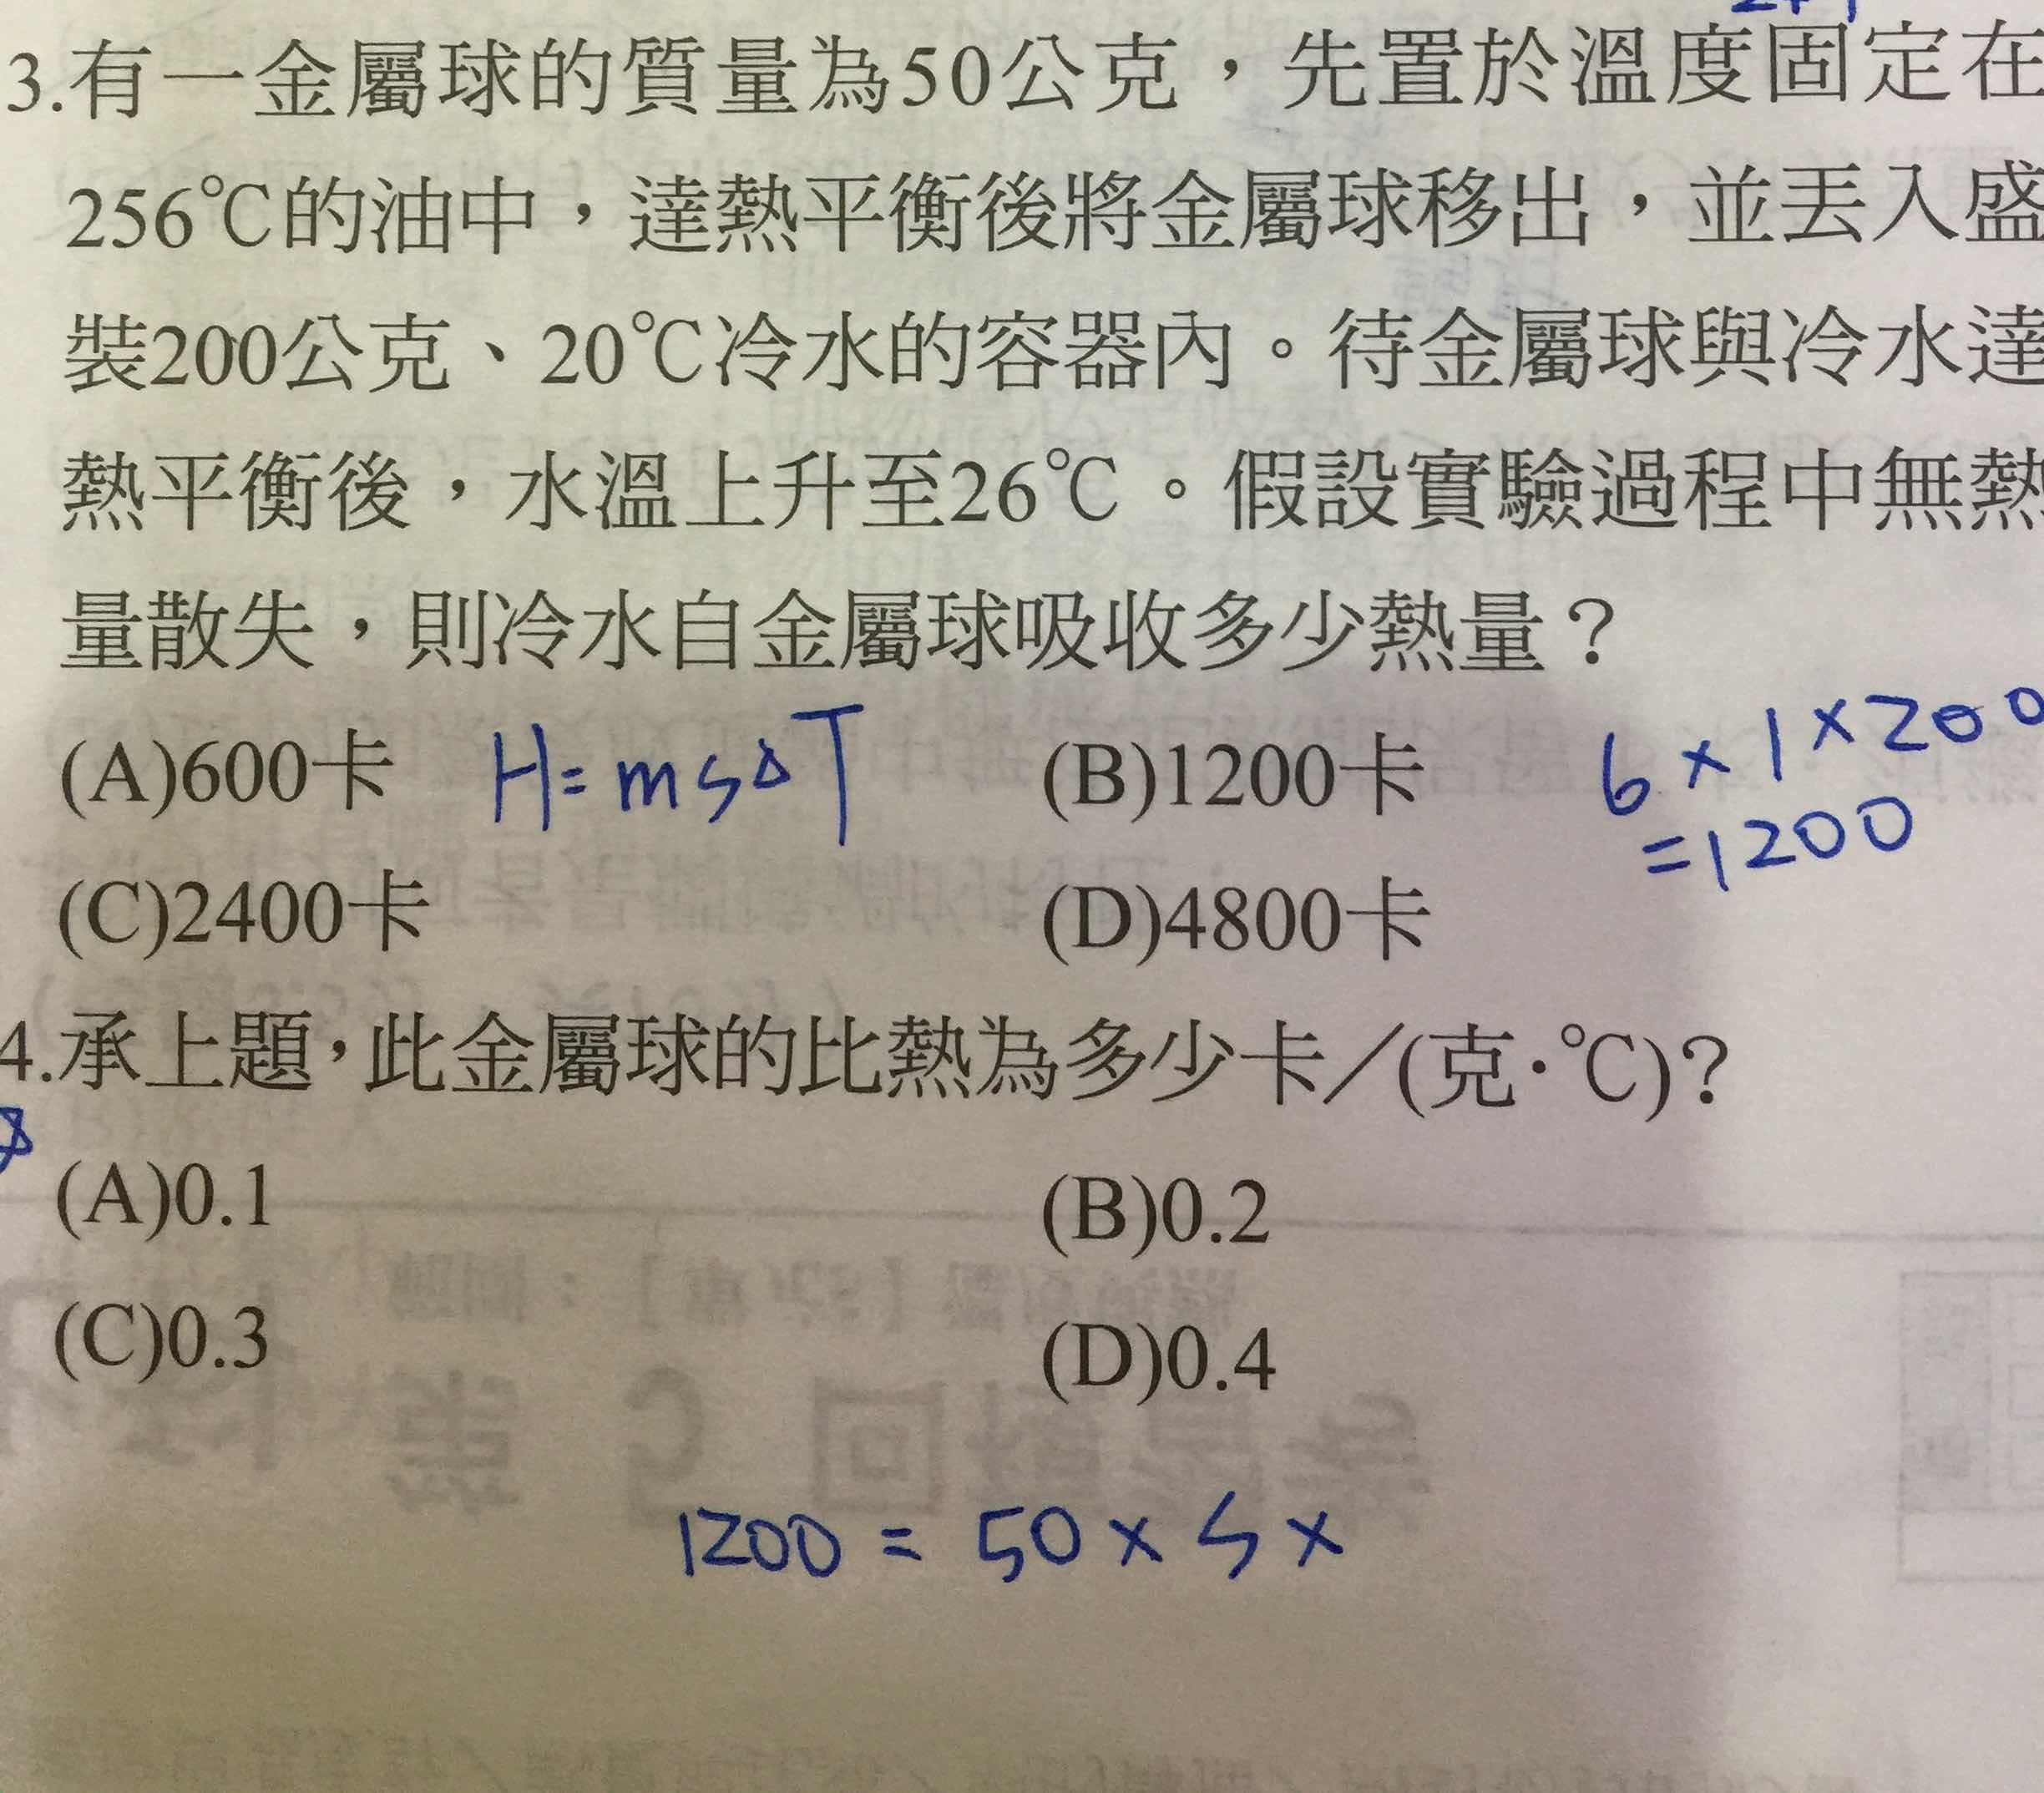 3.有一金屬球的質量為50公克，先置於溫度固定在
256℃的油中，達熱平衡後將金屬球移出，並丟入盛
裝200公克、20℃冷水的容器內。待金屬球與冷水達
熱平衡後，水溫上升至26℃。假設實驗過程中無熱
量散失，則冷水自金屬球吸收多少熱量？
(A)600卡 H=msΔT (B)1200卡 6×1×200
=1200
(C)2400卡 (D)4800卡
4.承上題，此金屬球的比熱為多少卡／(克·℃)？
(A)0.1 (B)0.2
(C)0.3 (D)0.4
1200 = 50×s×